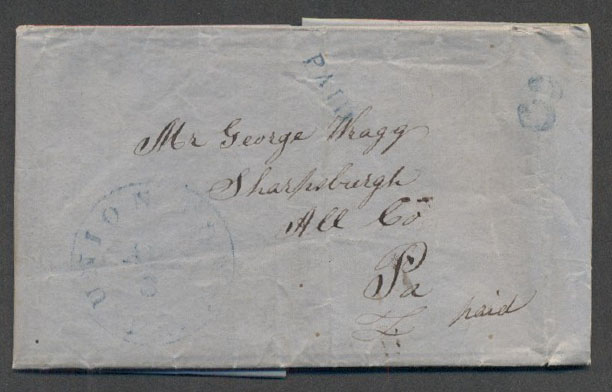 PAID
3
Mr George Wragg
Sharpsburgh
All Co
Pa
paid
UNION